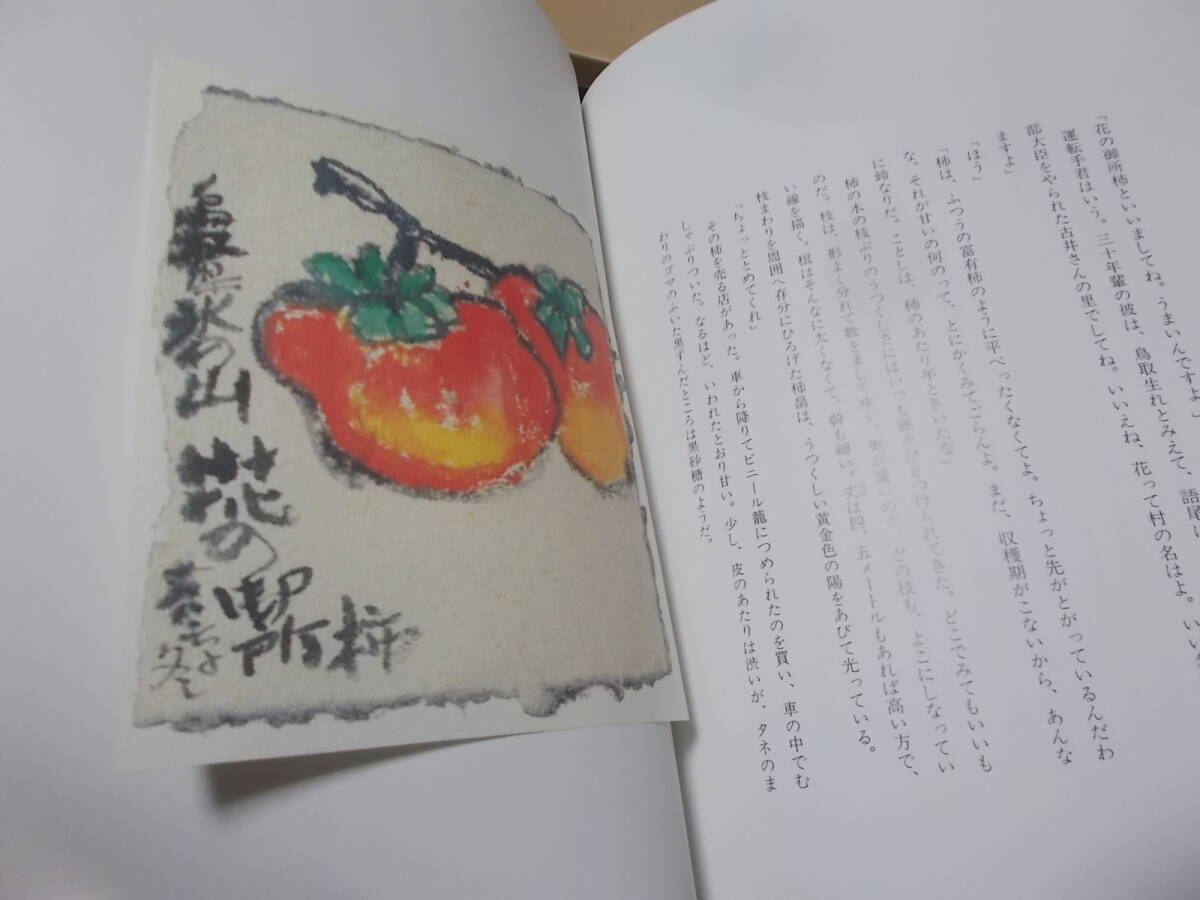 氷の山
花の
御所柿
語尾に
「花の御所柿といいましてね。うまいんですよ」
運転手君はいう。三十年輩の彼は、鳥取生れとみえて、
部大臣をやられた古井さんの里でしてね。いいえね、花って村の名はよ。いい
ますよ」
「ほう」
「柿は、ふつうの富有柿のように平べったくなくてよ。ちょっと先がとがっているんだわ
な。それが甘いの何のって、とにかくみてごらんよ。まだ、収穫期がこないから、あんな
に鈴なりだ。ことしは、柿のあたり年ときいたな」
柿の木の枝ぶりのうつくしさにはいつも眼をひきつけられてきた。どこでみてもいいも
のだ。枝は、形よく分れて数をましてゆく。 が重いので、どの枝も、よこにしなってい
い線を描く。根はそんなに太くなくて、幹も細い。丈は四、五メートルもあれば高い方で、
枝まわりを周囲へ存分にひろげた柿畠は、うつくしい黄金色の陽をあびて光っている。
「ちょっととめてくれ」
その柿を売る店があった。車から降りてビニール籠につめられたのを買い、車の中でむ
しゃぶりついた。なるほど、いわれたとおり甘い。少し、皮のあたりは渋いが、タネのま
わりのゴマのふいた黒ずんだところは黒砂糖のようだ。